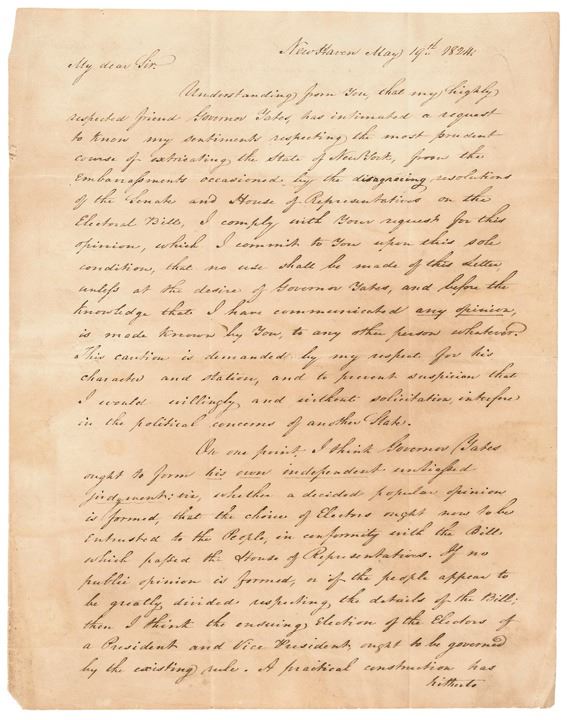 New Haven May 19th 1824.
My dear Sir.
Understanding from You, that my highly
respected friend Governor Yates, has intimated a request
to know my sentiments respecting the most prudent
course of extricating the State of New York, from the
embarrassments occasioned by the disagreeing resolutions
of the Senate and House of Representatives on the
Electoral Bill, I comply with Your request for this
opinion, which I commit to You upon this sole
condition, that no use shall be made of this Letter,
unless at the desire of Governor Yates, and before the
knowledge that I have communicated any opinion,
is made known by You, to any other person whatever.
This caution is demanded by my respect for his
character and station, and to prevent suspicion that
I would willingly and without solicitation, interfere
in the political concerns of another State.
On one point I think Governor Yates
ought to form his own independent unbiassed
judgment: viz, whether a decided popular opinion
is formed, that the choice of Electors ought now to be
entrusted to the People, in conformity with the Bill
which passed the House of Representatives. If no
public opinion is formed, or if the people appear to
be greatly divided respecting the details of the Bill;
then I think the ensuing Election of the Electors of
a President and Vice President ought to be governed
by the existing rule. A practical construction has
hitherto